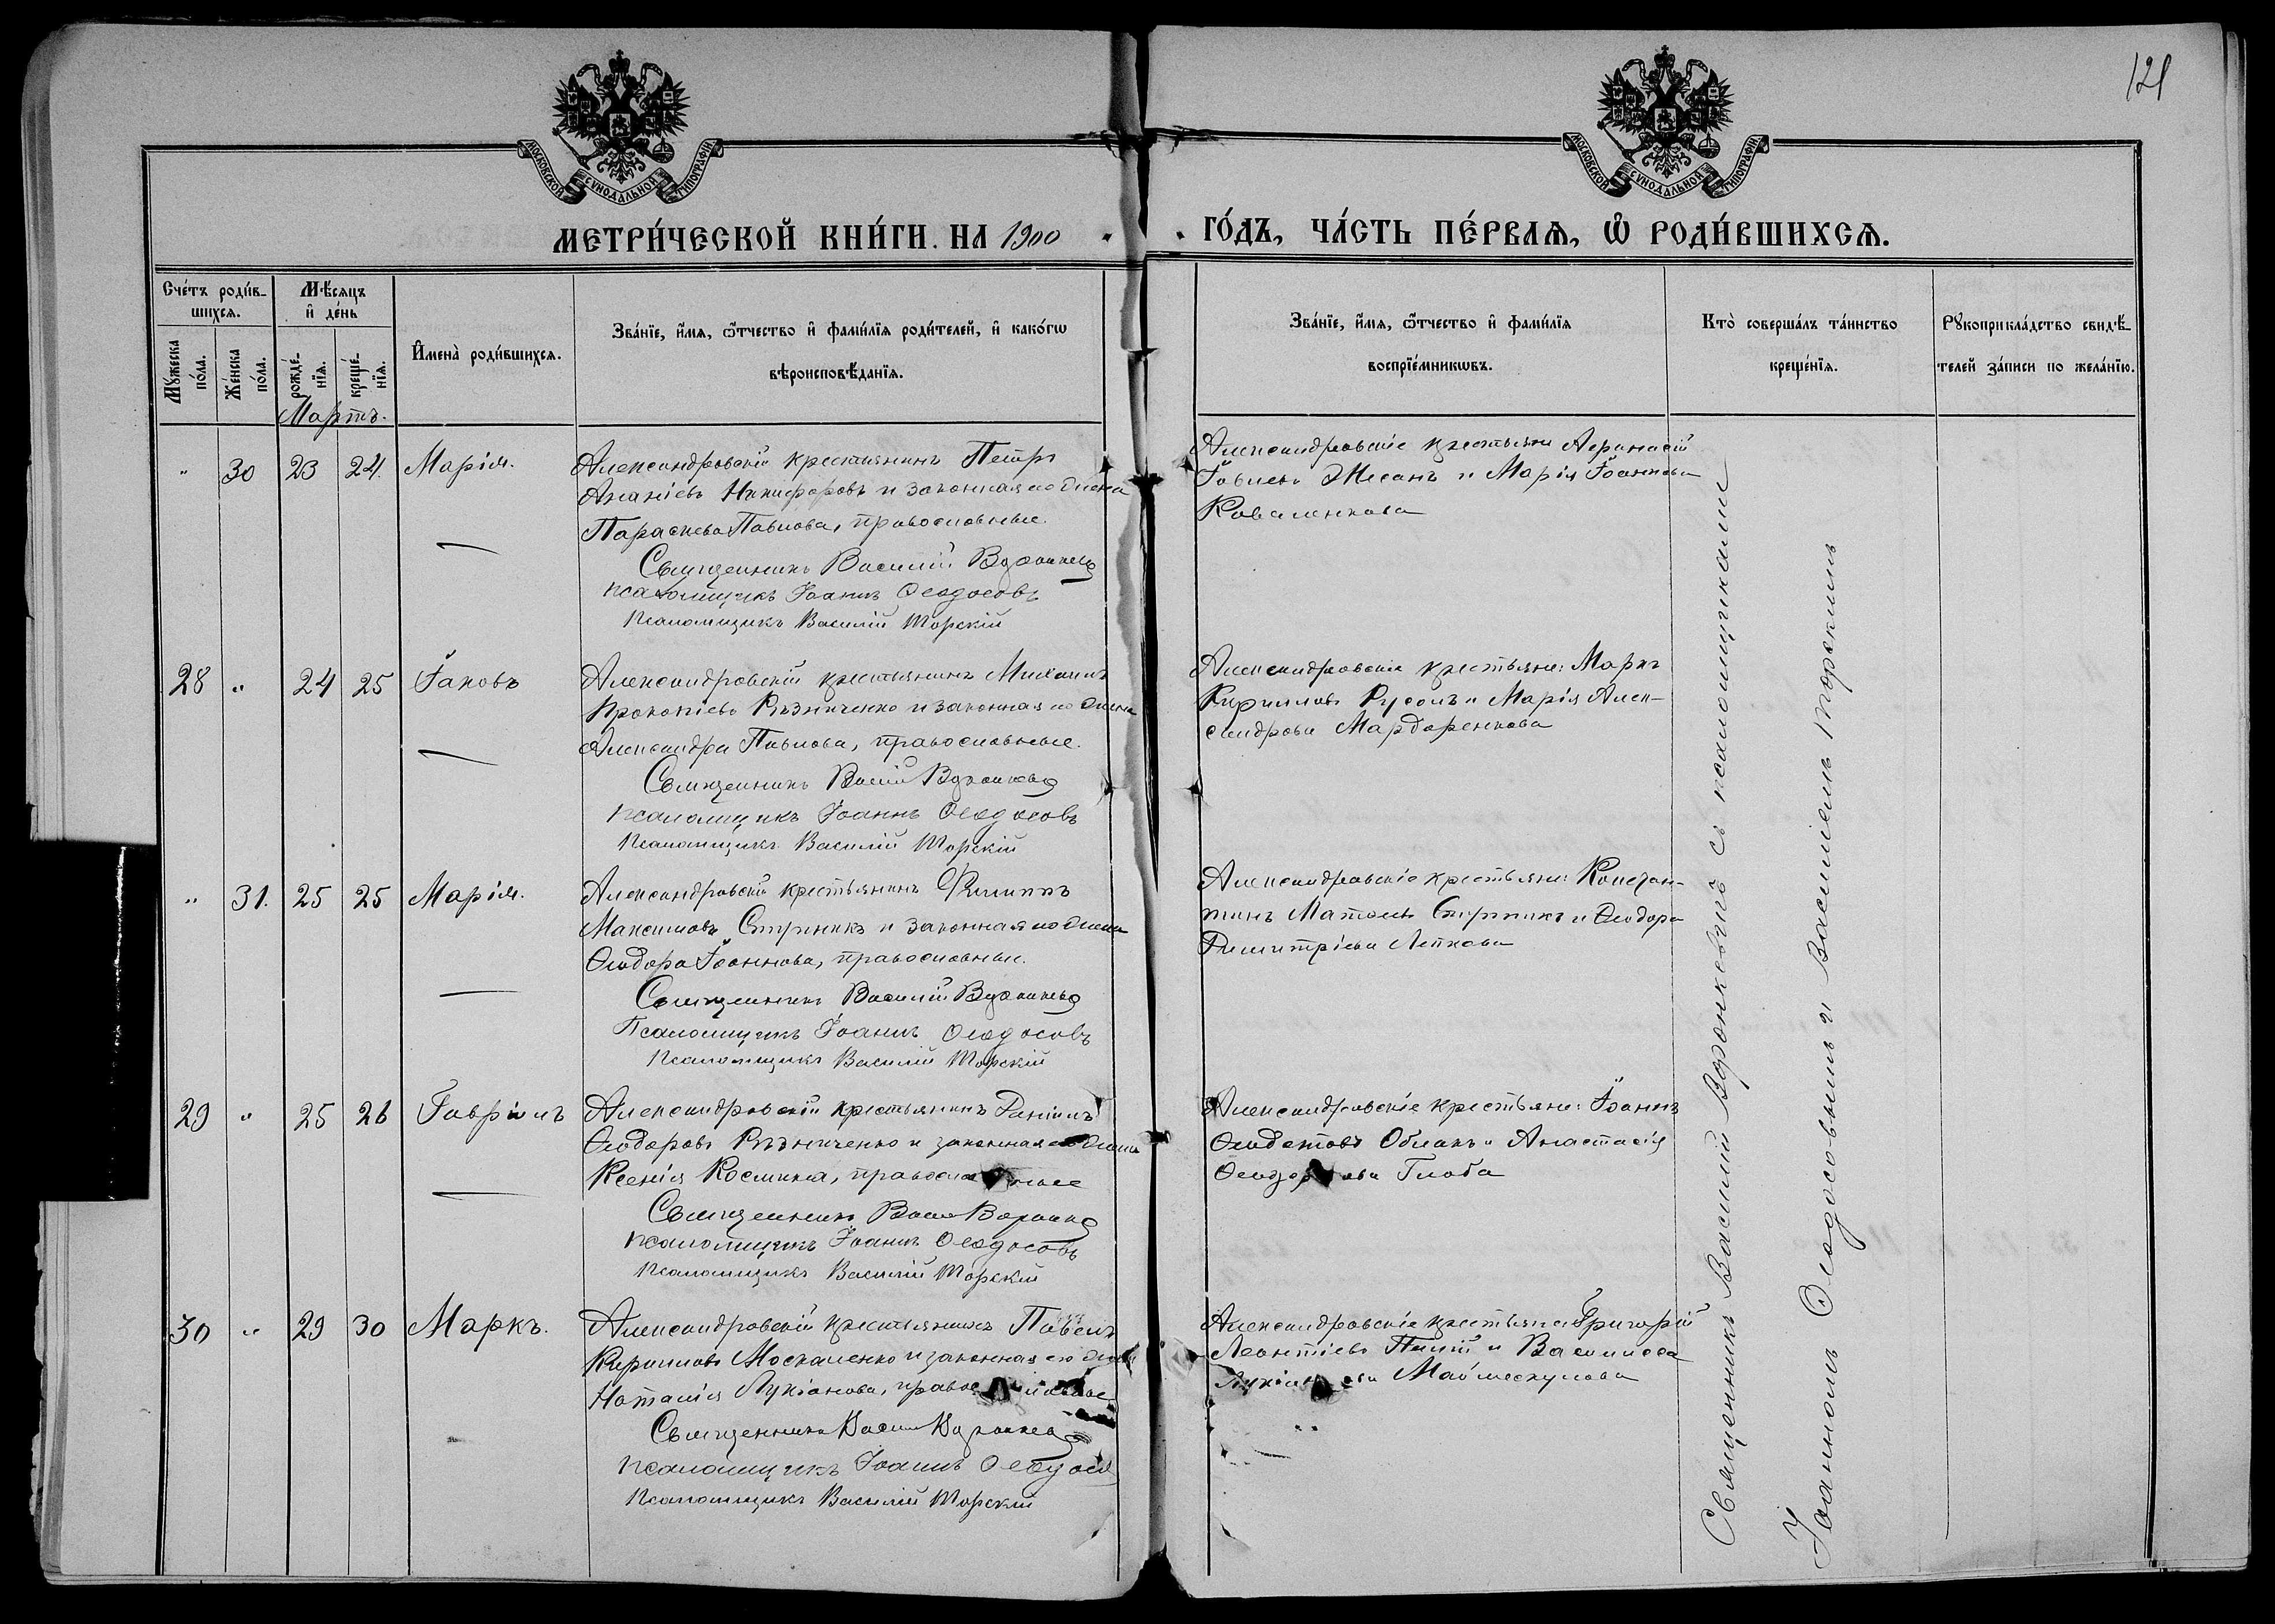 121
МОСКОВСКОЙ СѴНОДАЛЬНОЙ ТИПОГРАФІИ
МОСКОВСКОЙ СѴНОДАЛЬНОЙ ТИПОГРАФІИ
МЕТРИ́ЧЕСКОЙ КНИ́ГИ НА 1900 ГО́ДЪ, ЧА́СТЬ ПЕ́РВАѦ, Ѡ҆ РОДИ́ВШИХСѦ.
Сче́тъ роди́в-
шихсѧ.
Мѣ́сѧцъ
и҆ де́нь
Мꙋ́жеска по́ла.
Же́нска по́ла.
рожде́-нїѧ.
креще́-нїѧ.
И҆мена̀ роди́вшихсѧ.
Зва́нїе, и҆́мѧ, ѻ҆́тчество и҆ фами́лїѧ роди́телей, и҆ како́гѡ
вѣроисповѣ́данїѧ.
Зва́нїе, и҆́мѧ, ѻ҆́тчество и҆ фами́лїѧ
воспрїе́мникѡвъ.
Кто̀ соверша́лъ та́инство
креще́нїѧ.
Рꙋкоприкла́дство свидѣ́-
телей за́писи по жела́нїю.
Мартъ.
" 30 23 24. Марія.
Александровскій крестьянинъ Петръ
Ананіевъ Никифоровъ и законная его жена
Параскева Павлова, православные.
Священникъ Василій Воронкевъ
псаломщикъ Іоаннъ Ѳеодосовъ
Псаломщикъ Василій Торскій
Александровскіе крестьяне Аѳанасій
Іовлевъ и Марія Іоаннова
Коваленкова
28 " 24 25 Іаковъ
Александровскій крестьянинъ Михаилъ
Прокопіевъ Рѣзниченко и законная его жена
Александра Павлова, православные.
Священникъ Васілій Воронкевъ
псаломщикъ Іоаннъ Ѳеодосовъ
Псаломщикъ Василій Торскій
Александровскіе крестьяне: Маркъ
Кирилловъ Русолъ и Марія Алек-
сандрова Мардаренкова
" 31. 25 25 Марія.
Александровскій крестьянинъ Филиппъ
Максимовъ Стрникъ и законная его жена
Ѳеодора Іоаннова, православные.
Священникъ Василій Воронкевъ
Псаломщикъ Іоаннъ Ѳеодосовъ
Псаломщикъ Василій Торскій
Александровскіе крестьяне: Констан-
тинъ и Ѳеодора
Димитріева Лепкова
29 " 25 26 Гавріилъ
Александровскій крестьянинъ Даніилъ
Ѳеодоровъ Рѣзниченко и законная его жена
Ксенія Космина, православные
Священникъ Васил Воронкевъ
псаломщикъ Іоаннъ Ѳеодосовъ
Псаломщикъ Василій Торскій
Александровскіе крестьяне: Іоаннъ
Ѳеодотовъ Облакъ и Анастасія
Ѳеодорова Глоба
30 " 29 30 Маркъ.
Александровскій крестьянинъ Павелъ
Кирилловъ Москаленко и законная его жена
Наталія Лукіанова, православные
Священникъ Васил Воронкевъ
псаломщикъ Іоаннъ Ѳеодосов
Псаломщикъ Василій Торскій
Александровскіе крестьяне Григорій
Леонтіевъ и Василисса
Лукіанова Маймескулова
Священникъ Василій Воронкевичъ съ псаломщиками
Іоанномъ Ѳеодосовымъ и Василіемъ Торскимъ